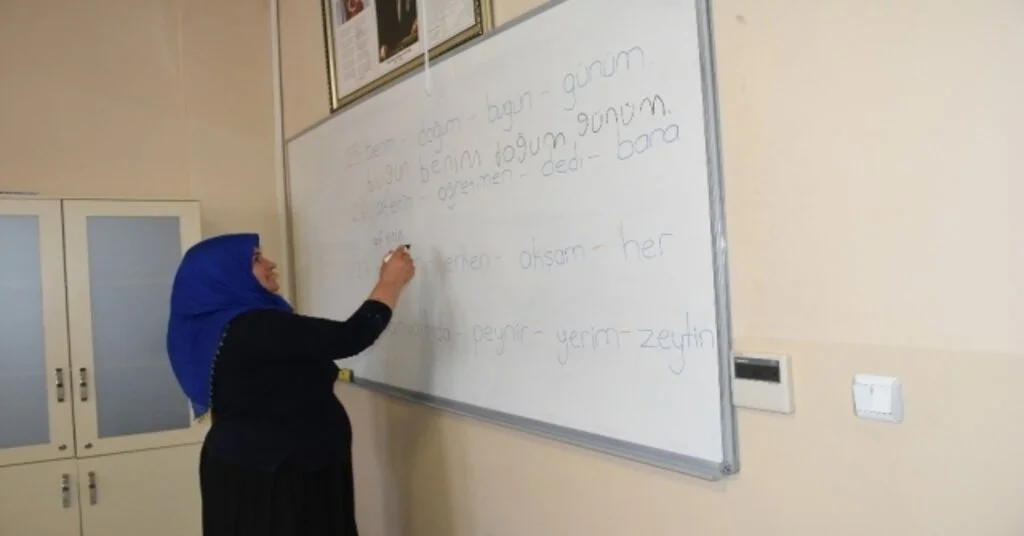 benim - doğum - bugün - günüm.
bugün benim doğum günüm.
aferin - öğretmen - dedi - bana
erken - akşam - her
peynir - yerim - zeytin